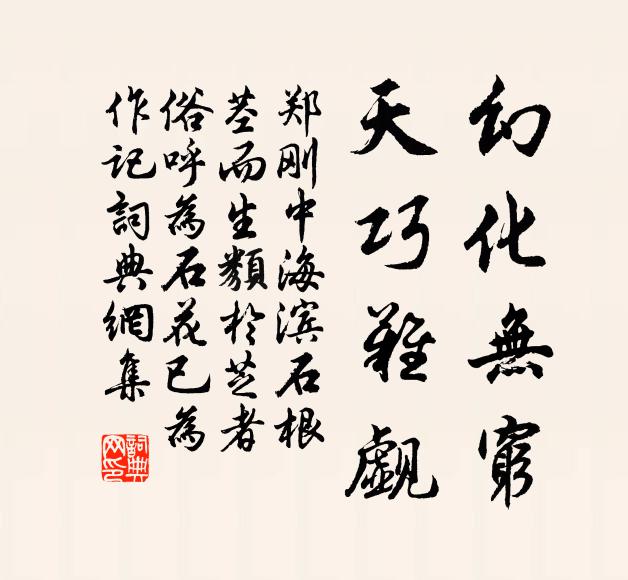 幻化無窮
天巧難覷
郑刚中海滨石根
茎而生類於芝者
俗呼為石花已為
作记詞典網集
詞典
网印